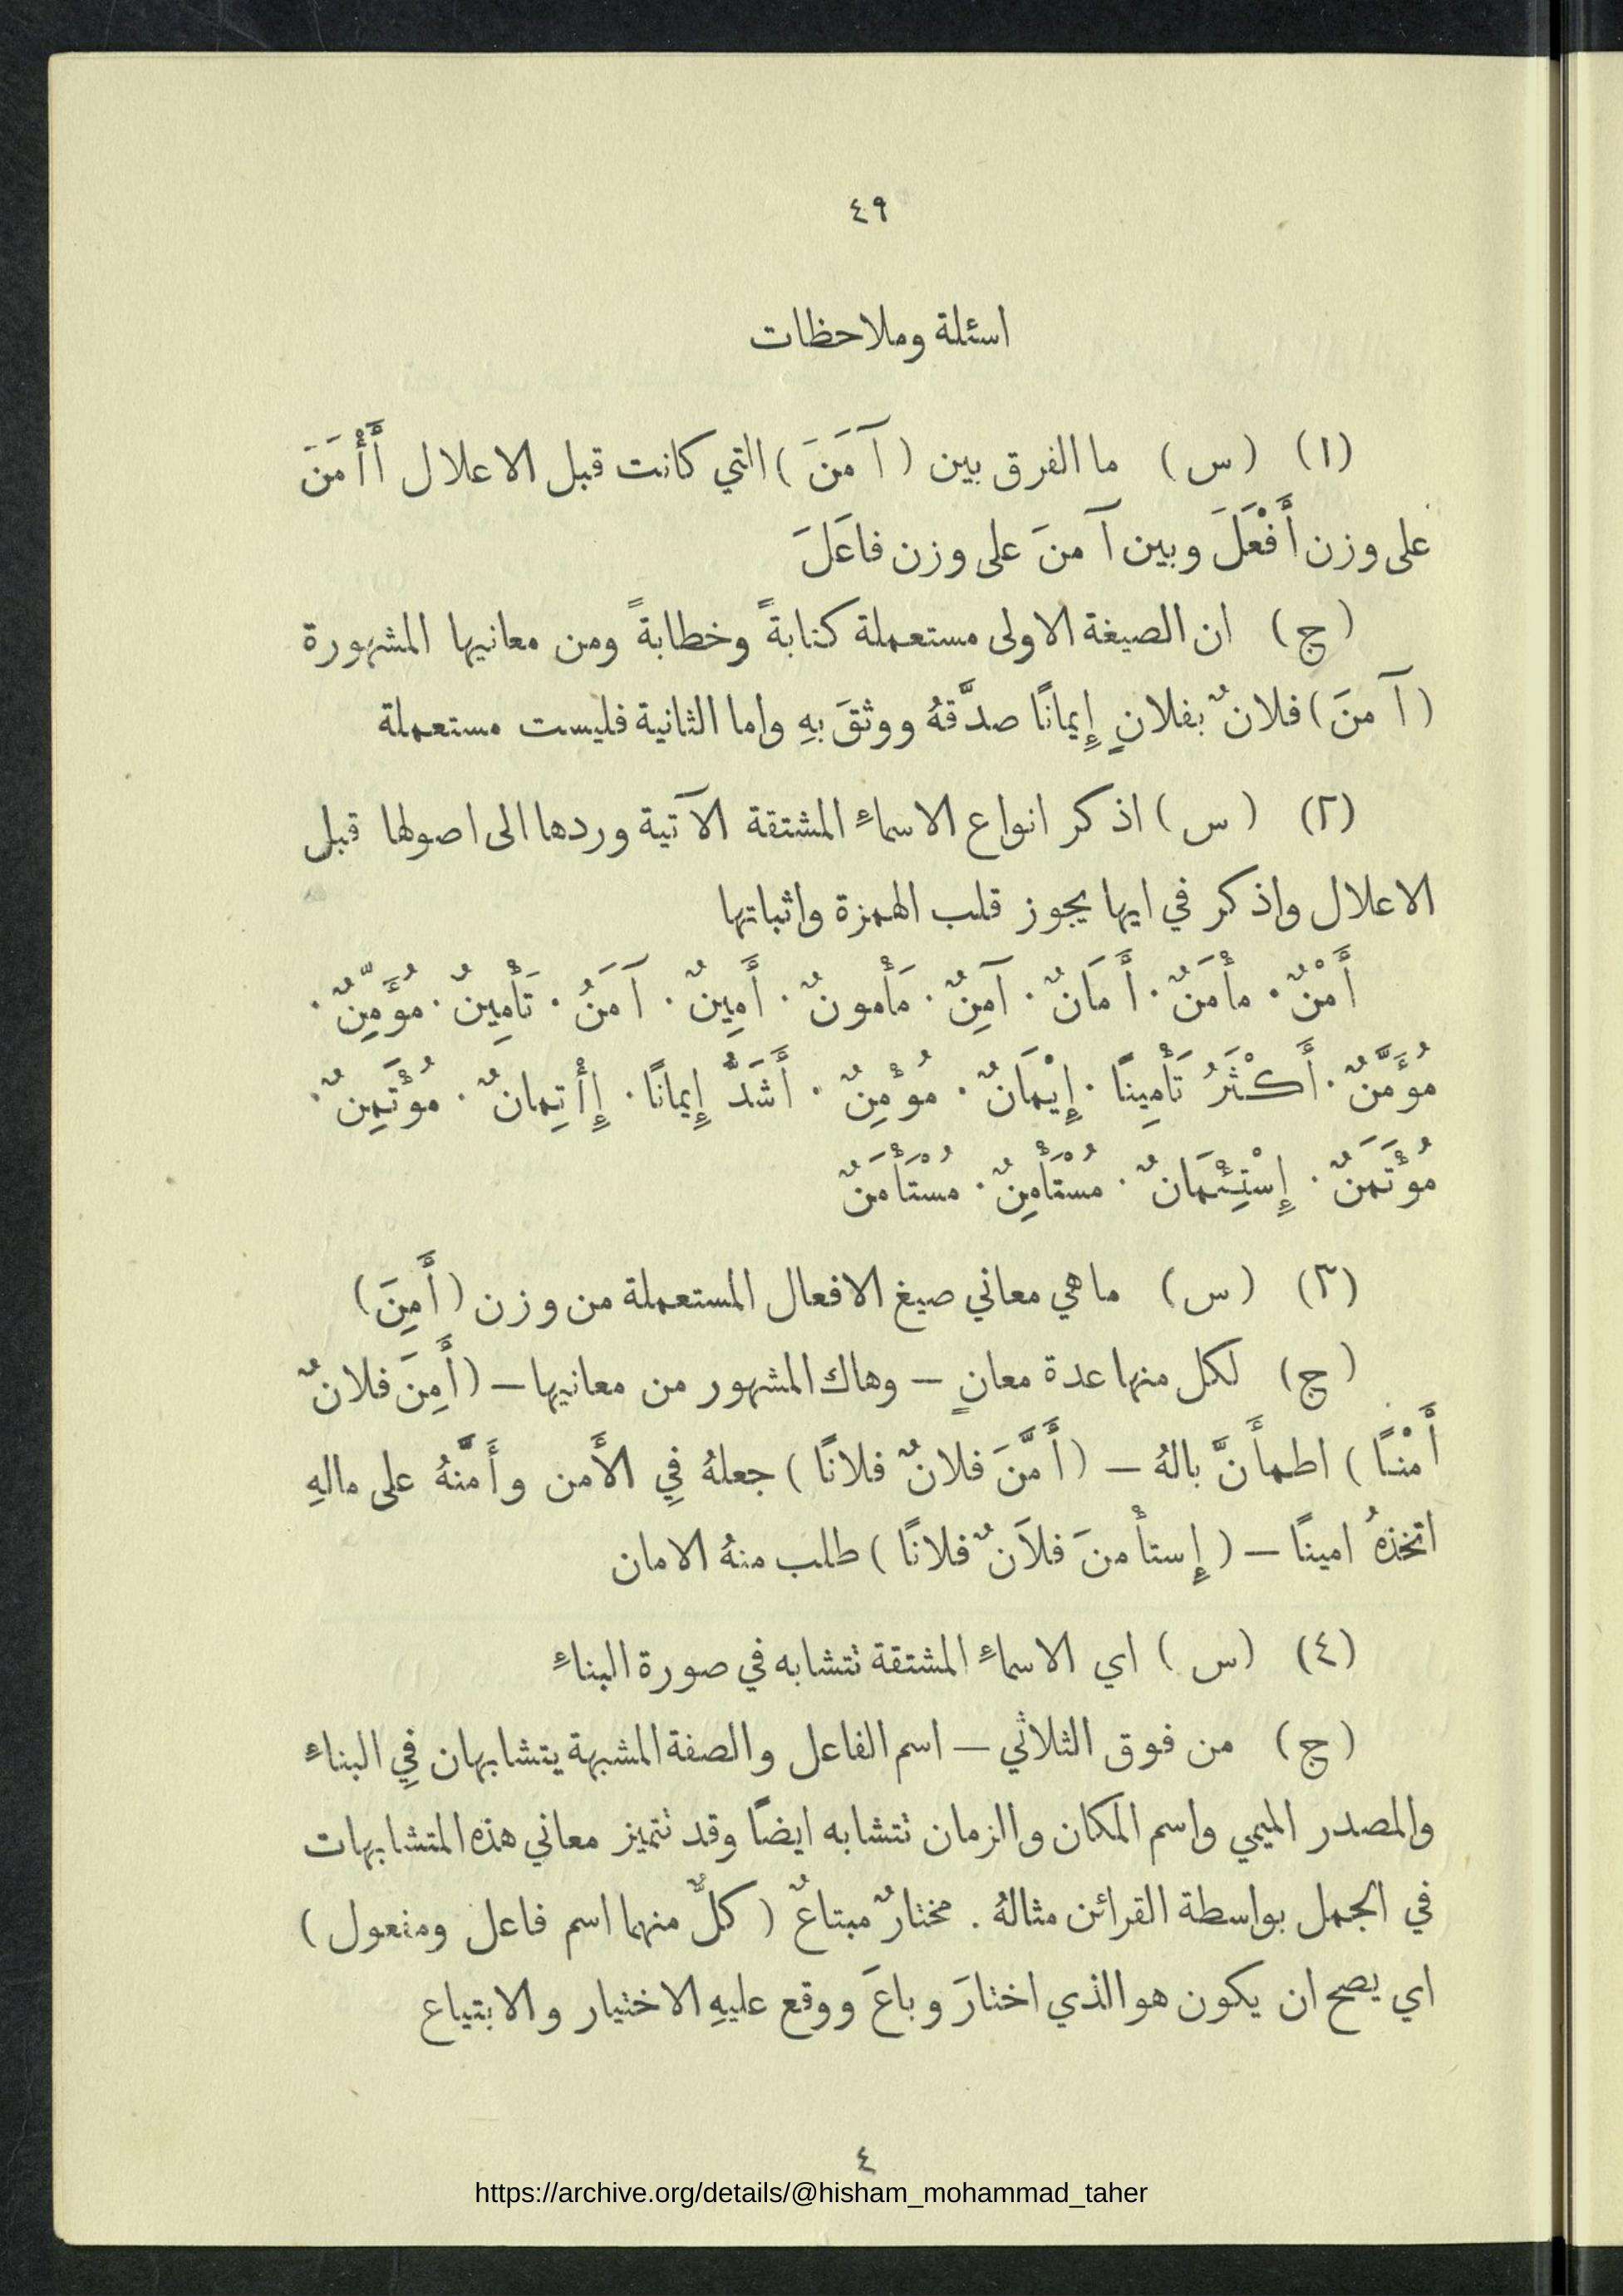 ٤٩
اسئلة وملاحظات
(١) (س) ما الفرق بين (آمَنَ) التي كانت قبل الاعلال أَأْمَنَ
على وزن أَفْعَلَ وبين آمنَ على وزن فاعَلَ
(ج) ان الصيغة الاولى مستعملة كتابةً وخطابةً ومن معانيها المشهورة
(آمنَ) فلانٌ بفلانٍ إِيمانًا صدَّقهُ ووثقَ بهِ واما الثانية فليست مستعملة
(٢) (س) اذكر انواع الاسماءِ المشتقة الآتية وردها الى اصولها قبل
الاعلال واذكر في ايها يجوز قلب الهمزة واثباتها
أَمْنٌ . مأْمَنٌ . أَمَانٌ . آمِنٌ . مَأْمونٌ . أَمِينٌ . آمَنُ . تَأْمِينٌ . مُؤَمِّنٌ .
مُؤَمَّنٌ . أَكْثَرُ تَأْمِينًا . إِيْمَانٌ . مُؤْمِنٌ . أَشَدُّ إِيمانًا . إِأْتِمانٌ . مُؤْتَمِنٌ .
مُؤْتَمَنٌ . إِسْتِئْمَانٌ . مُسْتَأْمِنٌ . مُسْتَأْمَنٌ
(٣) (س) ما هي معاني صيغ الافعال المستعملة من وزن (أَمِنَ)
(ج) لكل منها عدة معانٍ – وهاك المشهور من معانيها – (أَمِنَ فلانٌ
أَمْنًا) اطمأَنَّ بالهُ – (أَمَّنَ فلانٌ فلانًا) جعلهُ فِي الأَمن وأَمَّنهُ على مالهِ
اتخذهُ امينًا – (إِستأْمنَ فلاَنٌ فلانًا) طلب منهُ الامان
(٤) (س) اي الاسماءِ المشتقة تتشابه في صورة البناءِ
(ج) من فوق الثلاثي – اسم الفاعل والصفة المشبهة يتشابهان فِي البناءِ
والمصدر الميمي واسم المكان والزمان تتشابه ايضًا وقد تتميز معاني هذه المتشابهات
في الجمل بواسطة القرائن مثالهُ . مختارٌ مبتاعٌ (كلٌّ منهما اسم فاعل ومفعول)
اي يصح ان يكون هو الذي اختارَ وباعَ ووقع عليهِ الاختيار والابتياع
٤
https://archive.org/details/@hisham_mohammad_taher